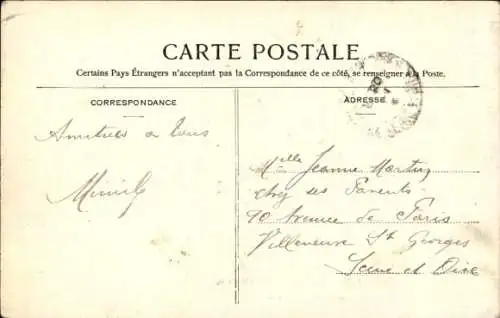 CARTE POSTALE
Certains Pays Étrangers n'acceptant pas la Correspondance de ce côté, se renseigner à la Poste.
CORRESPONDANCE
ADRESSE
Amitiés à tous
Mlle Jeanne Martin
chez ses Parents
90 Avenue de Paris
Villeneuve St Georges
Seine et Oise